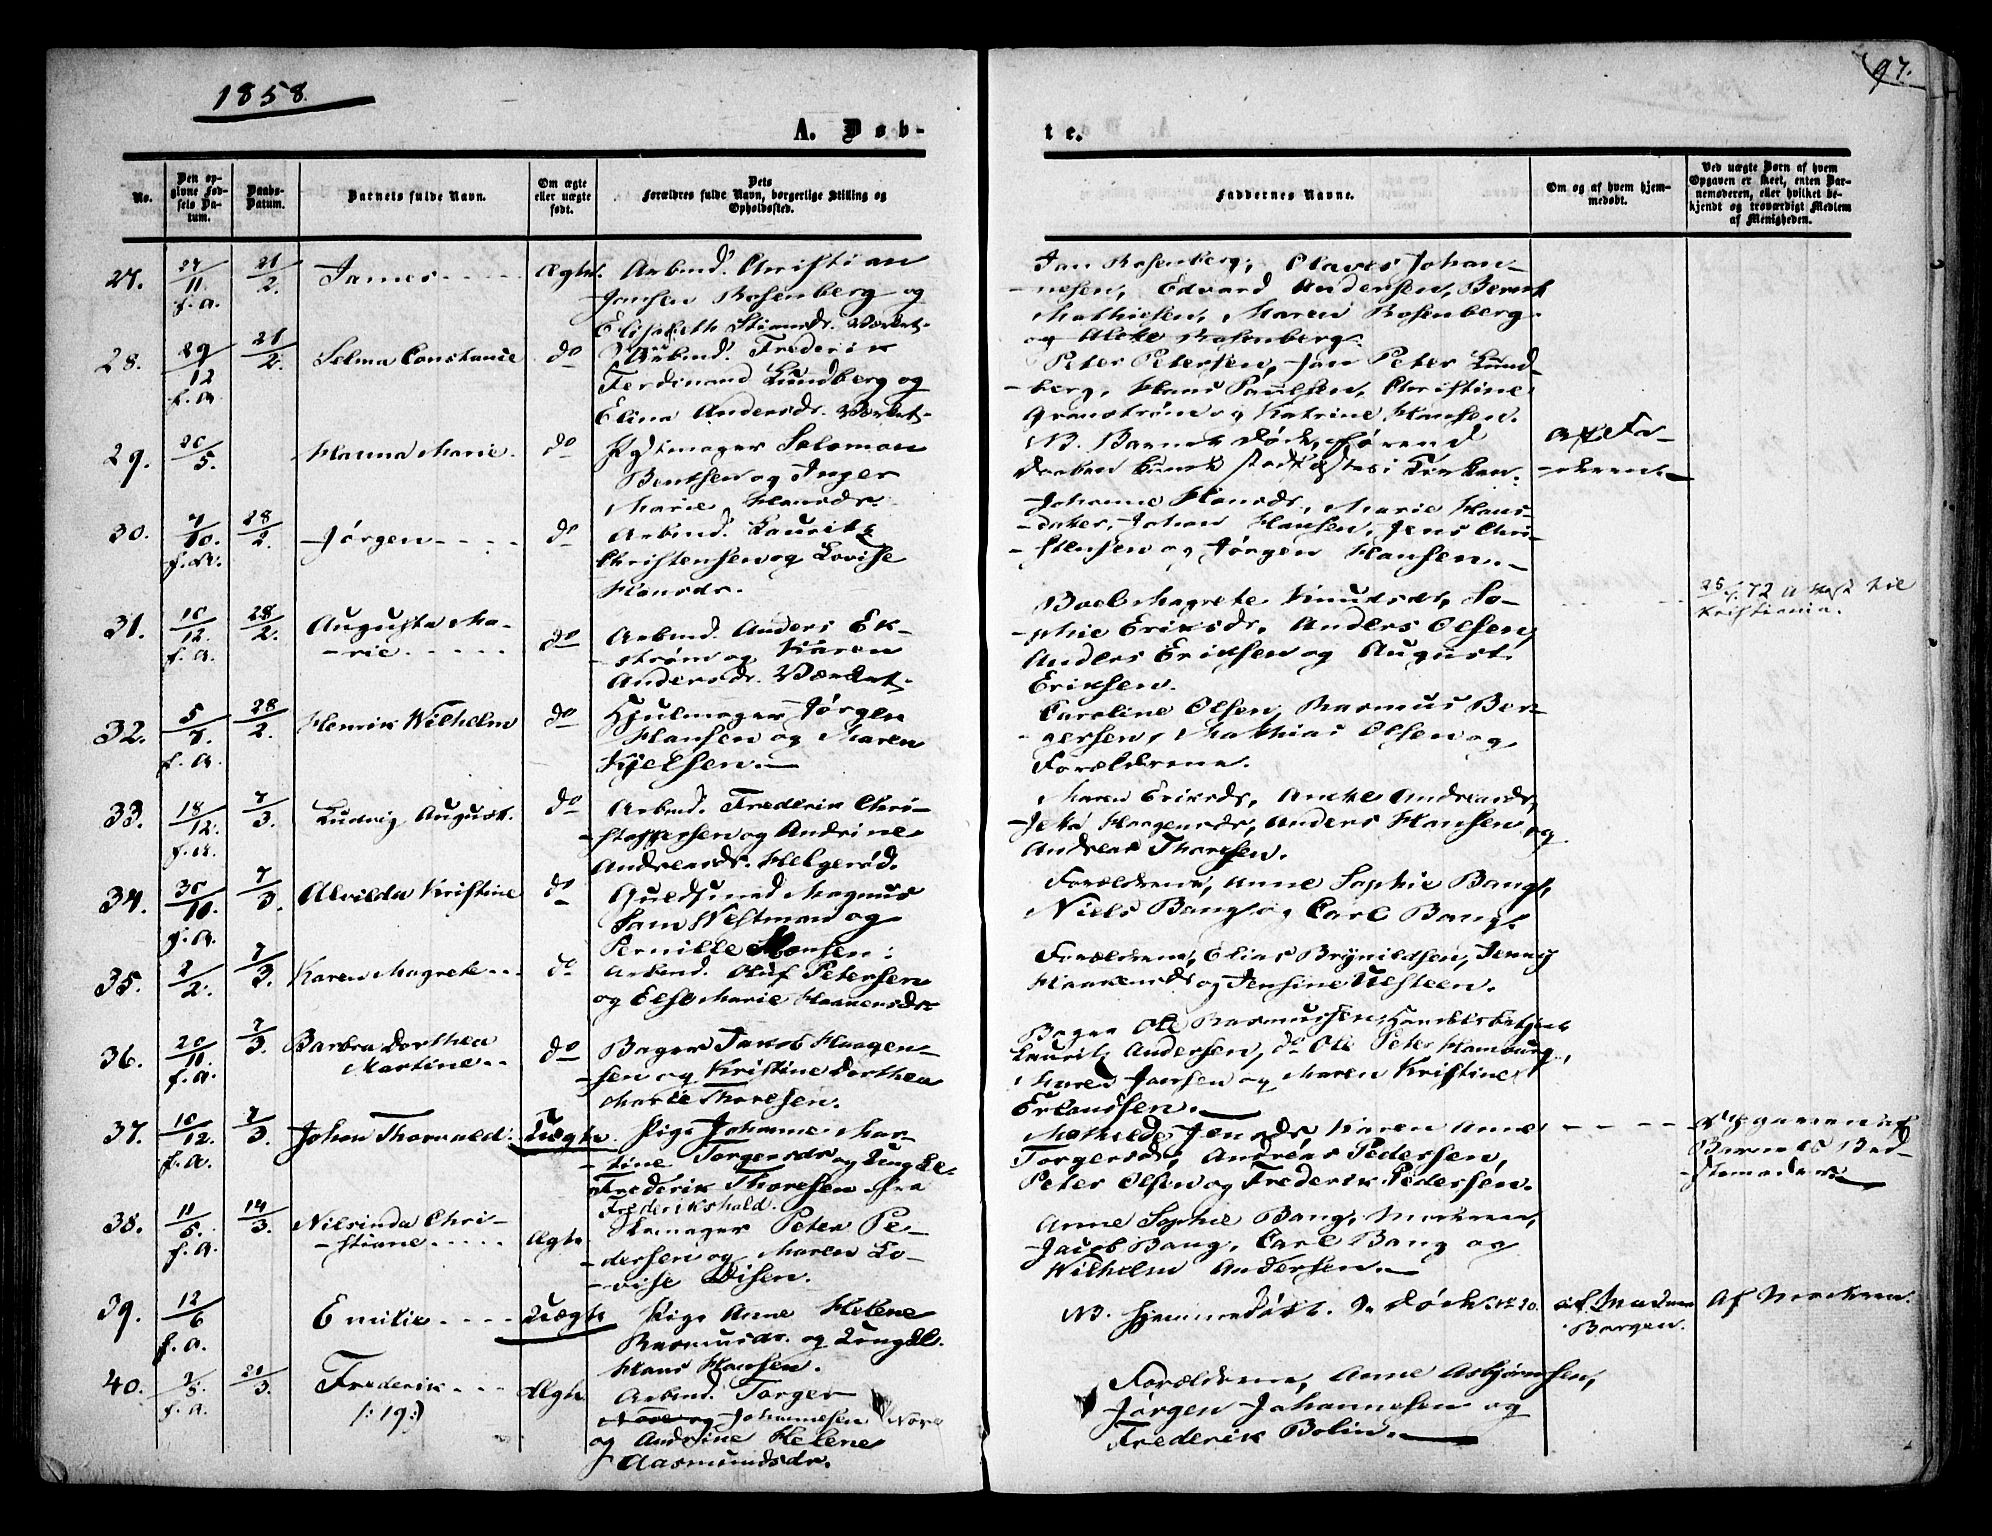 1858.
97.
A. Døb-
te.
No.
Den op-
givne Fød-
sels Da-
tum.
Daabs-
Datum.
Barnets fulde Navn.
Om ægte
eller uægte
født.
Dets
Forældres fulde Navn, borgerlige Stilling og
Opholdssted.
Faddernes Navne.
Om og af hvem hjem-
medøbt.
Ved uægte Børn af hvem
Opgaven er skeet, enten Bar-
nemoderen, eller hvilket be-
kjendt og troværdigt Medlem
af Menigheden.
27. 27/11 f.a. 21/2. James Ægte. Arbmd. Christian
Jansen Rosenberg og
Elisabeth Værket
Jan Rosenberg, Olaves Johan-
nesen, Edvard Andersen, Bernt
Mathiesen, Maren Rosenberg
og Rosenberg.
28. 29/12 f.a. 21/2. Selma Constance do Arbmd. Frederik
Ferdinand Lundberg og
Elina Andersdr. Værket
Peter Petersen, Jan Peter Lund-
berg, Hans Paulsen, Christine
og Katrine Hansen.
29. 20/5. Hanna Marie. do Solomon
Bentsen og Inger
Marie Hansdr.
NB. Barnet døde, førend
Daaben i Kirken.
af Fa-
deren.
30. 7/10. f.a. 28/2. Jørgen do Arbmd. Lauritz
Christensen og Lovise
Hansdr.
Johanne Hansdr, Marie Hans-
datter, Johan Hansen, Jens Chri-
stensen og Jørgen Hansen.
31. 10/12. f.a. 28/2. Augusta Ma-
rie do Arbmd. Anders Ek-
strøm og Karen
Andersdr. Værket
Boel Magrete Knudsdr, So-
phie Eriksdr, Anders Olsen,
Anders Eriksen og August
Eriksen.
72 Attest til
Kristiania.
32. 5/7. f.a. 28/2. Henrik Wilhelm do Hjulmager Jørgen
Hansen og Maren
Kjelsen.
Caroline Olsen, Rasmus Bor-
gersen, Mathias Olsen og
Forældrene.
33. 18/12. f.a. 7/3. Ludvig August. do Arbmd. Frederik Chri-
stoffersen og Andrine
Andreasdr. Helgerød.
Maren Eriksdr, Andreasdr,
Haagensdr, Anders Hansen og
Andreas Thoresen.
34. 30/10. f.a. 7/3. Alvilda Kristine do Guldsmed Magnus
Sam Westman og
Pernille Monsen:
Forældrene, Anne Sophie Bang,
Niels Bang og Carl Bang.
35. 2/2. 7/3. Karen Magrete do Arbmd. Oluf Petersen
og Else Marie Haavensdr
Forældrene, Elias Brynildsen, Jenny
Haavensdr og Jensine Ulsteen.
36. 20/11. f.a. 7/3. Barbra Dorthea
Martine do Bager Jakob Haagen-
sen og Kristine Dorthea
Marie Thoresen.
Bager Ole Rasmussen, Handelsbetjent
Lauritz Andersen, do Ole Peter Hamburg,
Jansen og Maren Kristine
Erlandsen.
37. 10/12. f.a. 7/3. Johan Thorvald. Uægte. Pige Johanne Mar-
tine Torgersdr og Ungkl.
Frederik Thoresen fra
Frederikshald.
Mathilde Jensdr, Karen Anne
Torgersdr, Andreas Pedersen,
Peter Olsen og Frederik Pedersen.
Opgaven af
Barnets Bed-
stemoder
38. 11/5. f.a. 14/3. Nilsinda Chri-
stiane Ægte Skomager Peter Pe-
dersen og Maren Lo-
vise Disen.
Anne Sophie Bang, Moderen,
Jacob Bang, Carl Bang og
Wilhelm Andersen.
39. 12/6 f.a. Emilie Uægte Pige Anne Helene
Rasmusdr. og Ungkl.
Hans Hansen.
NB. Hjemmedøbt. Død
af Madam
Borgen.
Af Moderen.
40. 2/5. f.a. 21/3. Frederik
/:19:/ Ægte Arbmd. Torger
Johannesen Nore
og Andrine Helene
Aasmundsdr.
Forældrene, Anne Asbjørnsen,
Jørgen Johannesen og
Frederik Bolin.